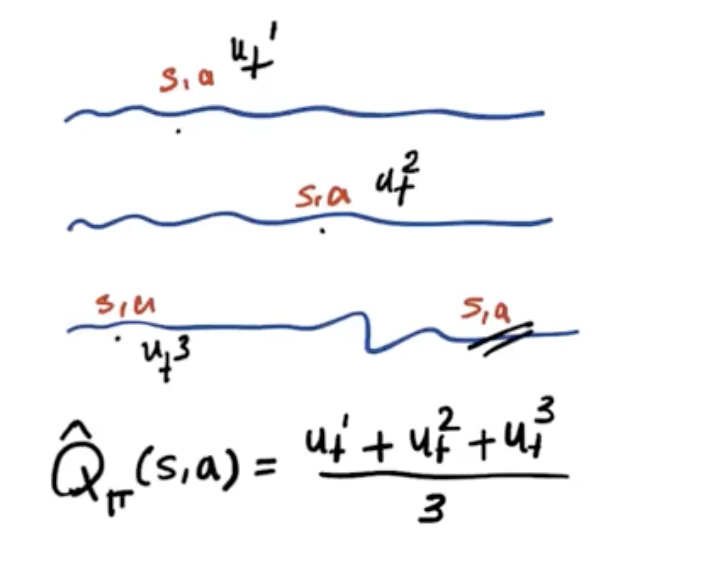 s,a u_t^1
s,a u_t^2
s,a s,a
u_t^3
Q̂_π(s,a) = (u_t^1 + u_t^2 + u_t^3) / 3